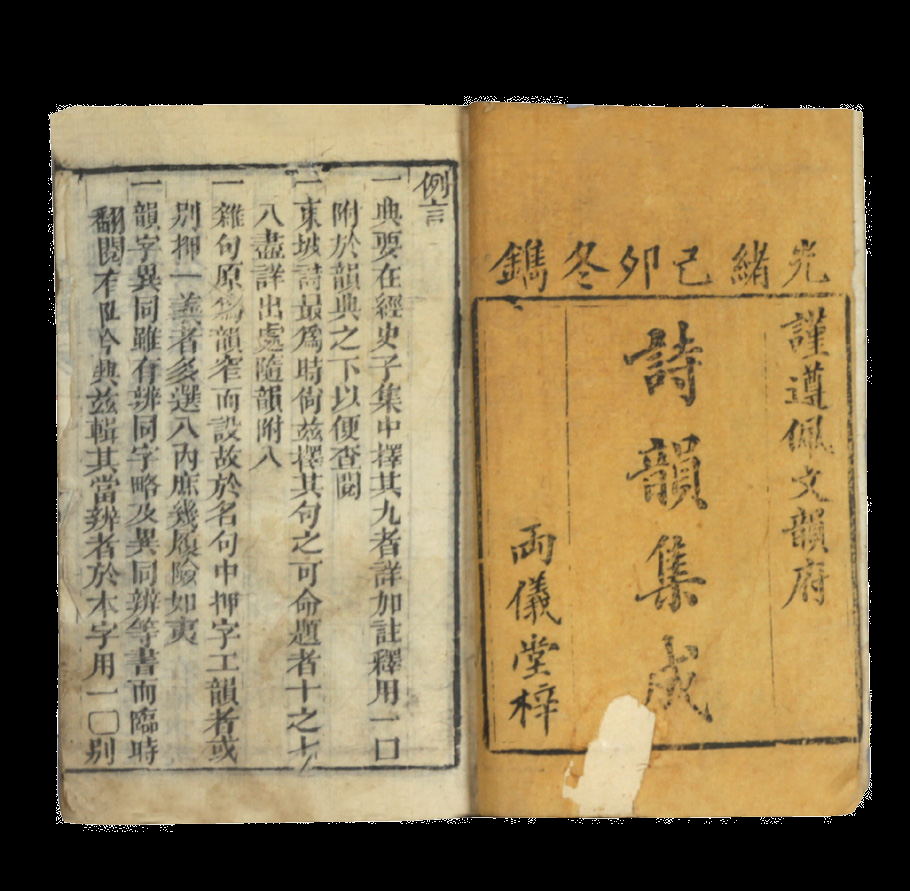 光緒己卯冬鐫
謹遵佩文韻府
詩韻集成
兩儀堂梓
例言
一典要在經史子集中擇其九者詳加註釋用一口
附於韻典之下以便查閱
一東坡詩最爲時尙兹擇其句之可命題者十之七
八盡詳出處隨韻附入
一雜句原爲韻窄而設故於名句中押字工韻者或
別押一義者多選入內庶幾履險如夷
一韻字異同雖有辨同字略及異同辨等書而臨時
翻閱典兹輯其當辨者於本字用一〇别